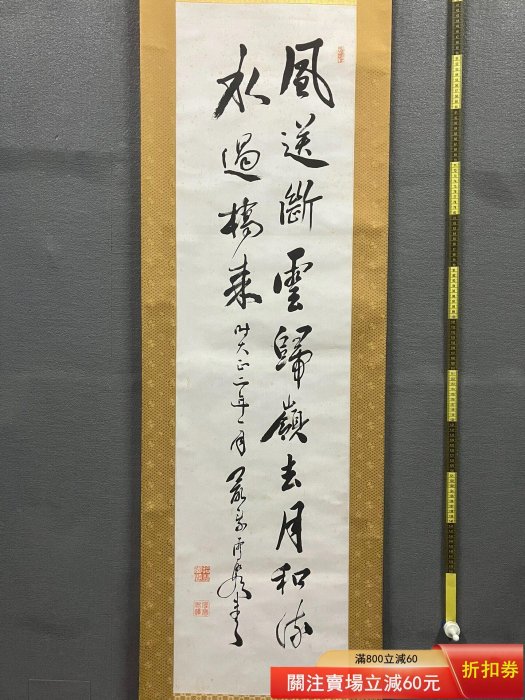 風送斷雲歸嶺去月和流
水過橋來時大正二年一月
滿800立減60
關注賣場立減60元
折扣券